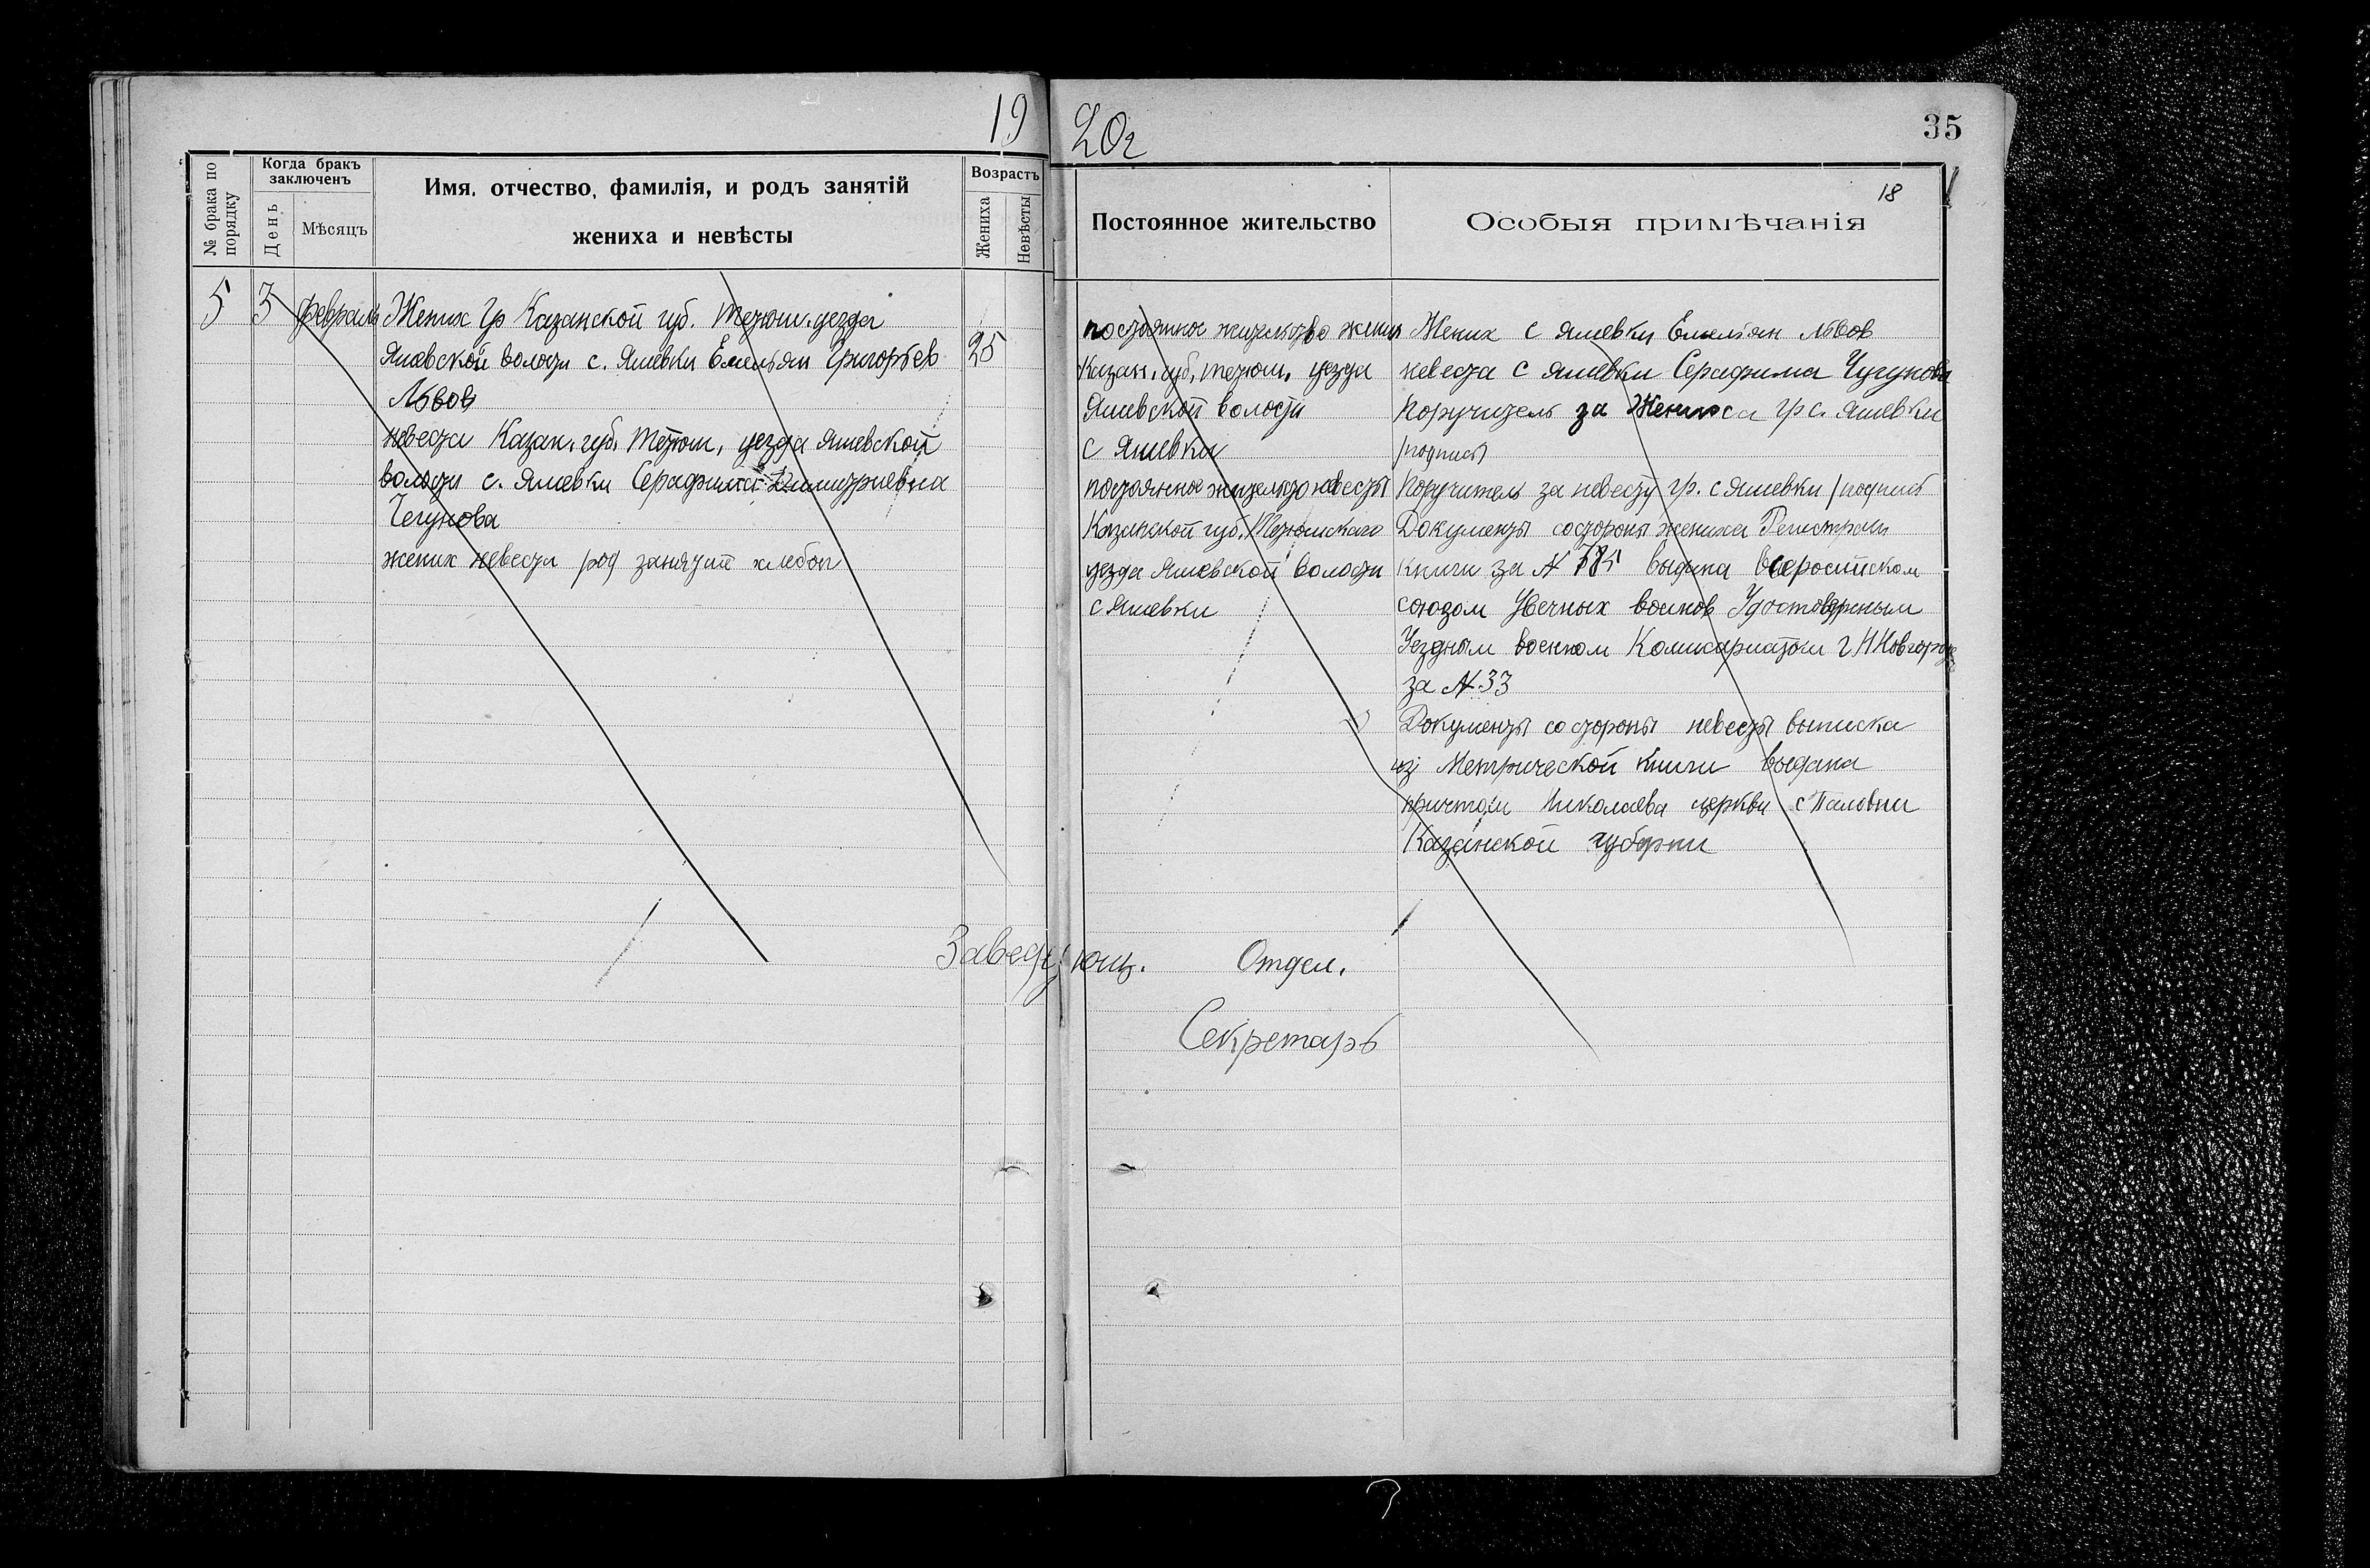 19 20г
35
18
№ брака по порядку
Когда бракъ заключенъ
День
Мѣсяцъ
Имя, отчество, фамилія, и родъ занятій
жениха и невѣсты
Возрастъ
Жениха
Невѣсты
Постоянное жительство
Особыя примѣчанія
5 3 февраль
Жених гр Казанской губ. Тетюш. уезда
Яшевской волости с. Яшевки Емельян Григорьев
25
Львов
невеста Казан. губ. Тетюш, уезда Яшевской
волости с. Яшевки Серафима Димитриевна
Чегунова
жених невеста род занятие хлебоп
постоянное жительство жених
Казан. губ, Тетюш, уезда
Яшевской волости
с Яшевки
постоянное жительство невесты
Казанской губ. Тетюшскаго
уезда Яшевской волости
с Яшевки
Жених с Яшевки Емельян Львов
невеста с Яшевки Серафима Чугунова
Поручитель за Жениха гр с. Яшевки
/подпись/
Поручитель за невесту гр. с Яшевки /подпись
Документы со стороны жениха Регистрац
книги за № 785 выдана Всеросийском
союзом Увечных воинов Удостоверенным
Уездным военном Комисариатом г Н Новгорода
за № 33
Документы со стороны невесты выписка
из Метрической книги выдана
причтом Николаева церкви с
Казанской губерни
Заведующ. Отдел.
Секретарь